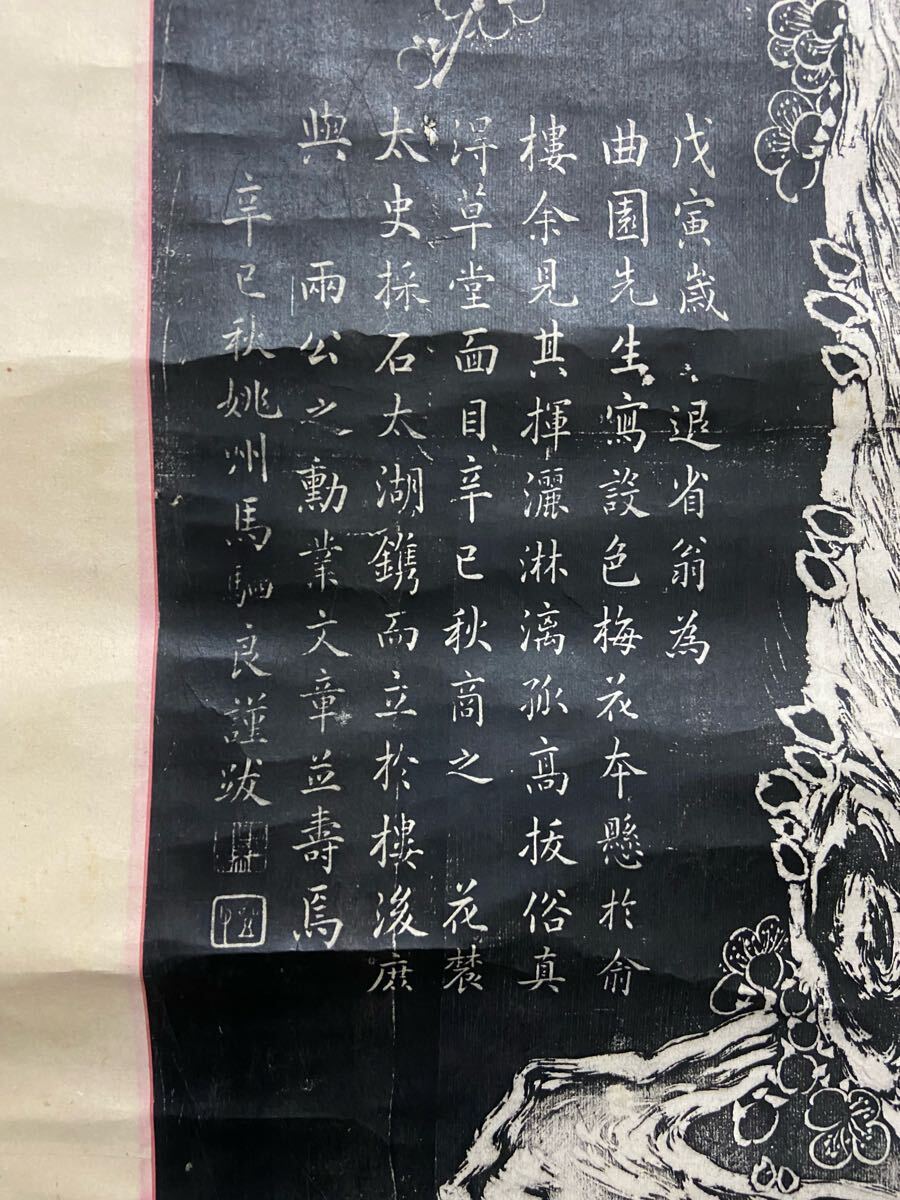 戊寅歲退省翁為
曲園先生寫設色梅花本懸於俞
樓余見其揮灑淋漓孤高拔俗真
得草堂面目辛巳秋商之花農
太史採石太湖鐫而立於樓後庶
與兩公之勳業文章並壽焉
辛巳秋姚州馬駟良謹跋